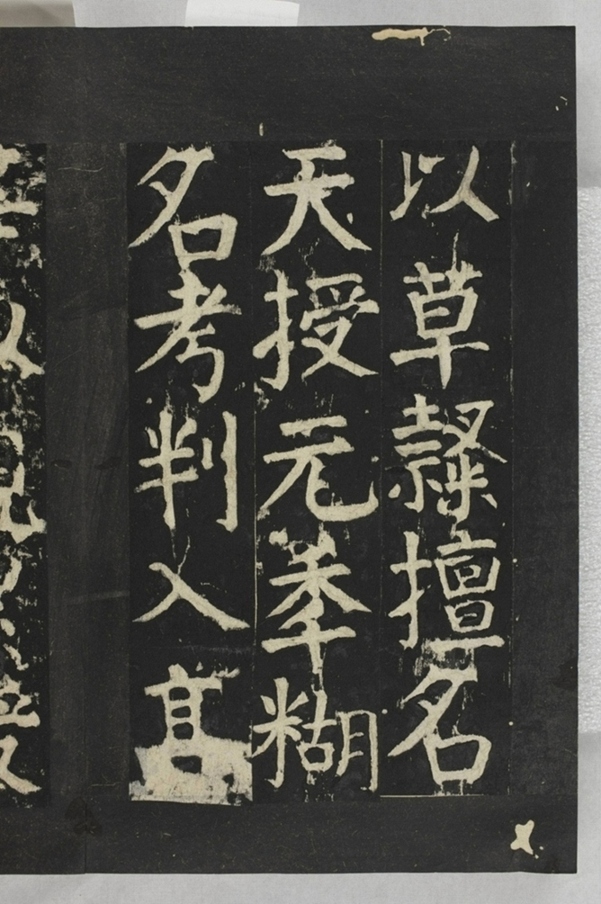 以草隷擅名
天授元年糊
名考判入高